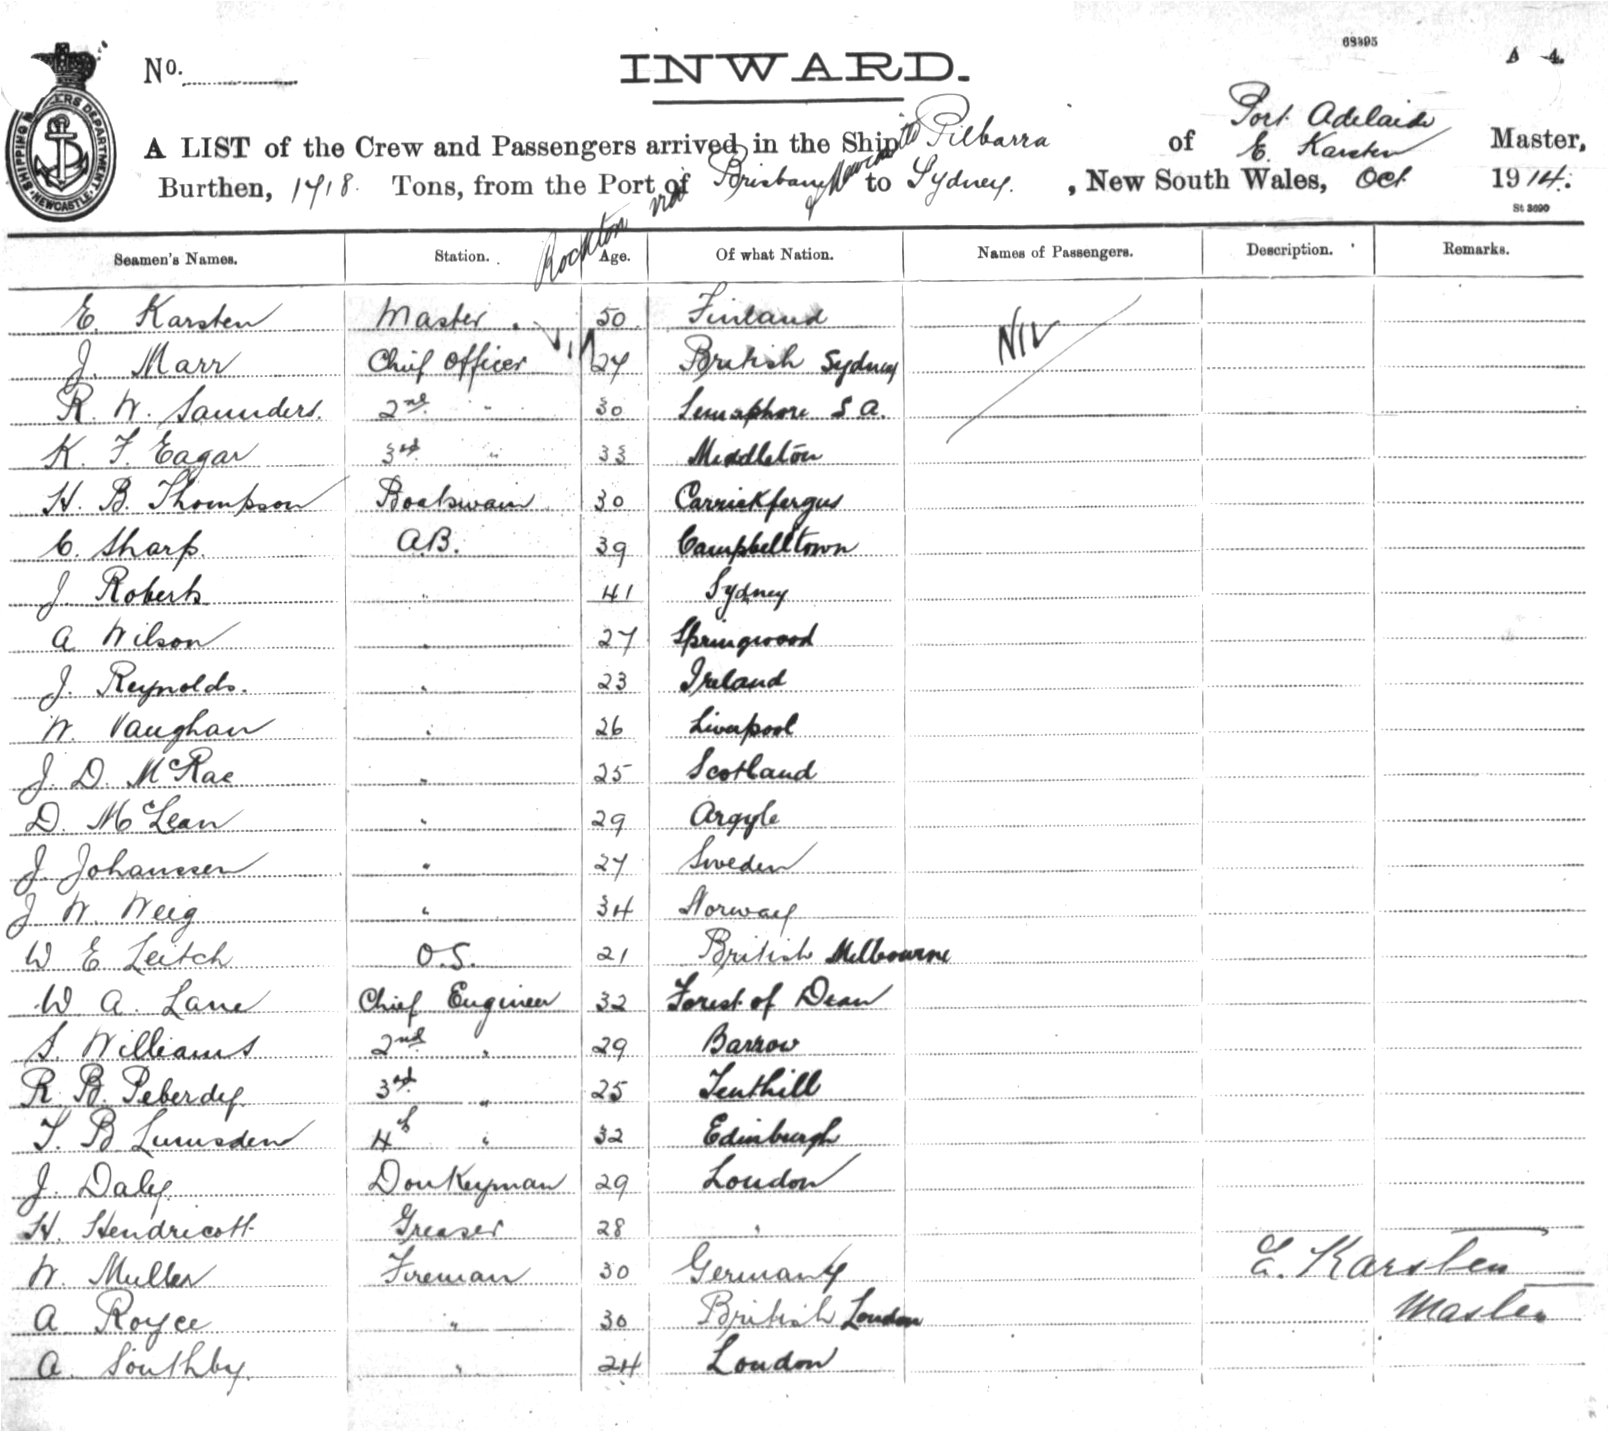 68395
A 4.
No.
INWARD.
SHIPPING MASTERS DEPARTMENT. NEWCASTLE
Port Adelaide
A LIST of the Crew and Passengers arrived in the Ship Pilbarra of E. Karsten Master,
Burthen, 1718. Tons, from the Port of Rockton via Brisbane & Newcastle to Sydney. , New South Wales, Oct 1914.
St 3690
Seamen's Names. Station. Age. Of what Nation. Names of Passengers. Description. Remarks.
E. Karsten Master. 50 Finland
NIL
J. Marr Chief Officer 27 British Sydney
R. W. Saunders. 2nd " 30 Semaphore S. A.
K. F. Eagar 3rd " 33 Middleton
H. B. Thompson Boatswain 30 Carrickfergus
C. Sharp. A.B. 39 Campbelltown
J Roberts " 41 Sydney
A Wilson " 27 Springwood
J. Reynolds. " 23 Ireland
W. Vaughan " 26 Liverpool
J. D. McRae " 25 Scotland
D. McLean " 29 Argyle
J. Johanssen " 27 Sweden
J W. Weig " 34 Norway
W E Leitch O.S. 21 British Melbourne
W A. Lane Chief Engineer 32 Forest of Dean
S. Williams 2nd " 29 Barrow
R. B. Peberdy. 3rd " 25 Tenthill
T. B Lumsden 4th " 32 Edinburgh
J. Daly. Donkeyman 29 London
H. Hendricott Greaser 28 "
W. Muller Fireman 30 Germany
E. Karsten
A Royce " 30 British London
Master
A. Southby. " 24 London